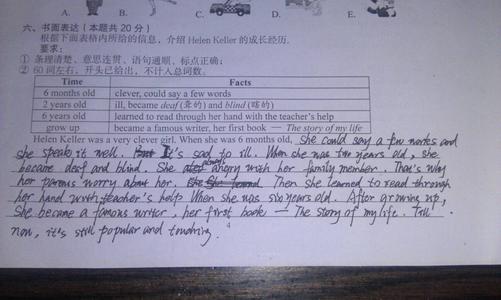 A. B. C. D. E.
六、书面表达(本题共20分)
根据下面表格内所给的信息,介绍 Helen Keller 的成长经历.
要求:
① 条理清楚、意思连贯、语句通顺、标点正确;
② 60词左右,开头已给出,不计入总词数。
Time Facts
6 months old clever, could say a few words
2 years old ill, became deaf (聋的) and blind (瞎的)
6 years old learned to read through her hand with the teacher's help
grow up became a famous writer, her first book — The story of my life
Helen Keller was a very clever girl. When she was 6 months old, she could say a few words and
she speaks it well. It's sad to ill. When she was two years old, she
became deaf and blind. She always angry with her family member. That's why
her parents worry about her. Then she learned to read through
her hand with teacher's help When she was six years old. After growing up,
She became a famous writer, her first book — The story of my life. Till
now, it's still popular and touching.
4